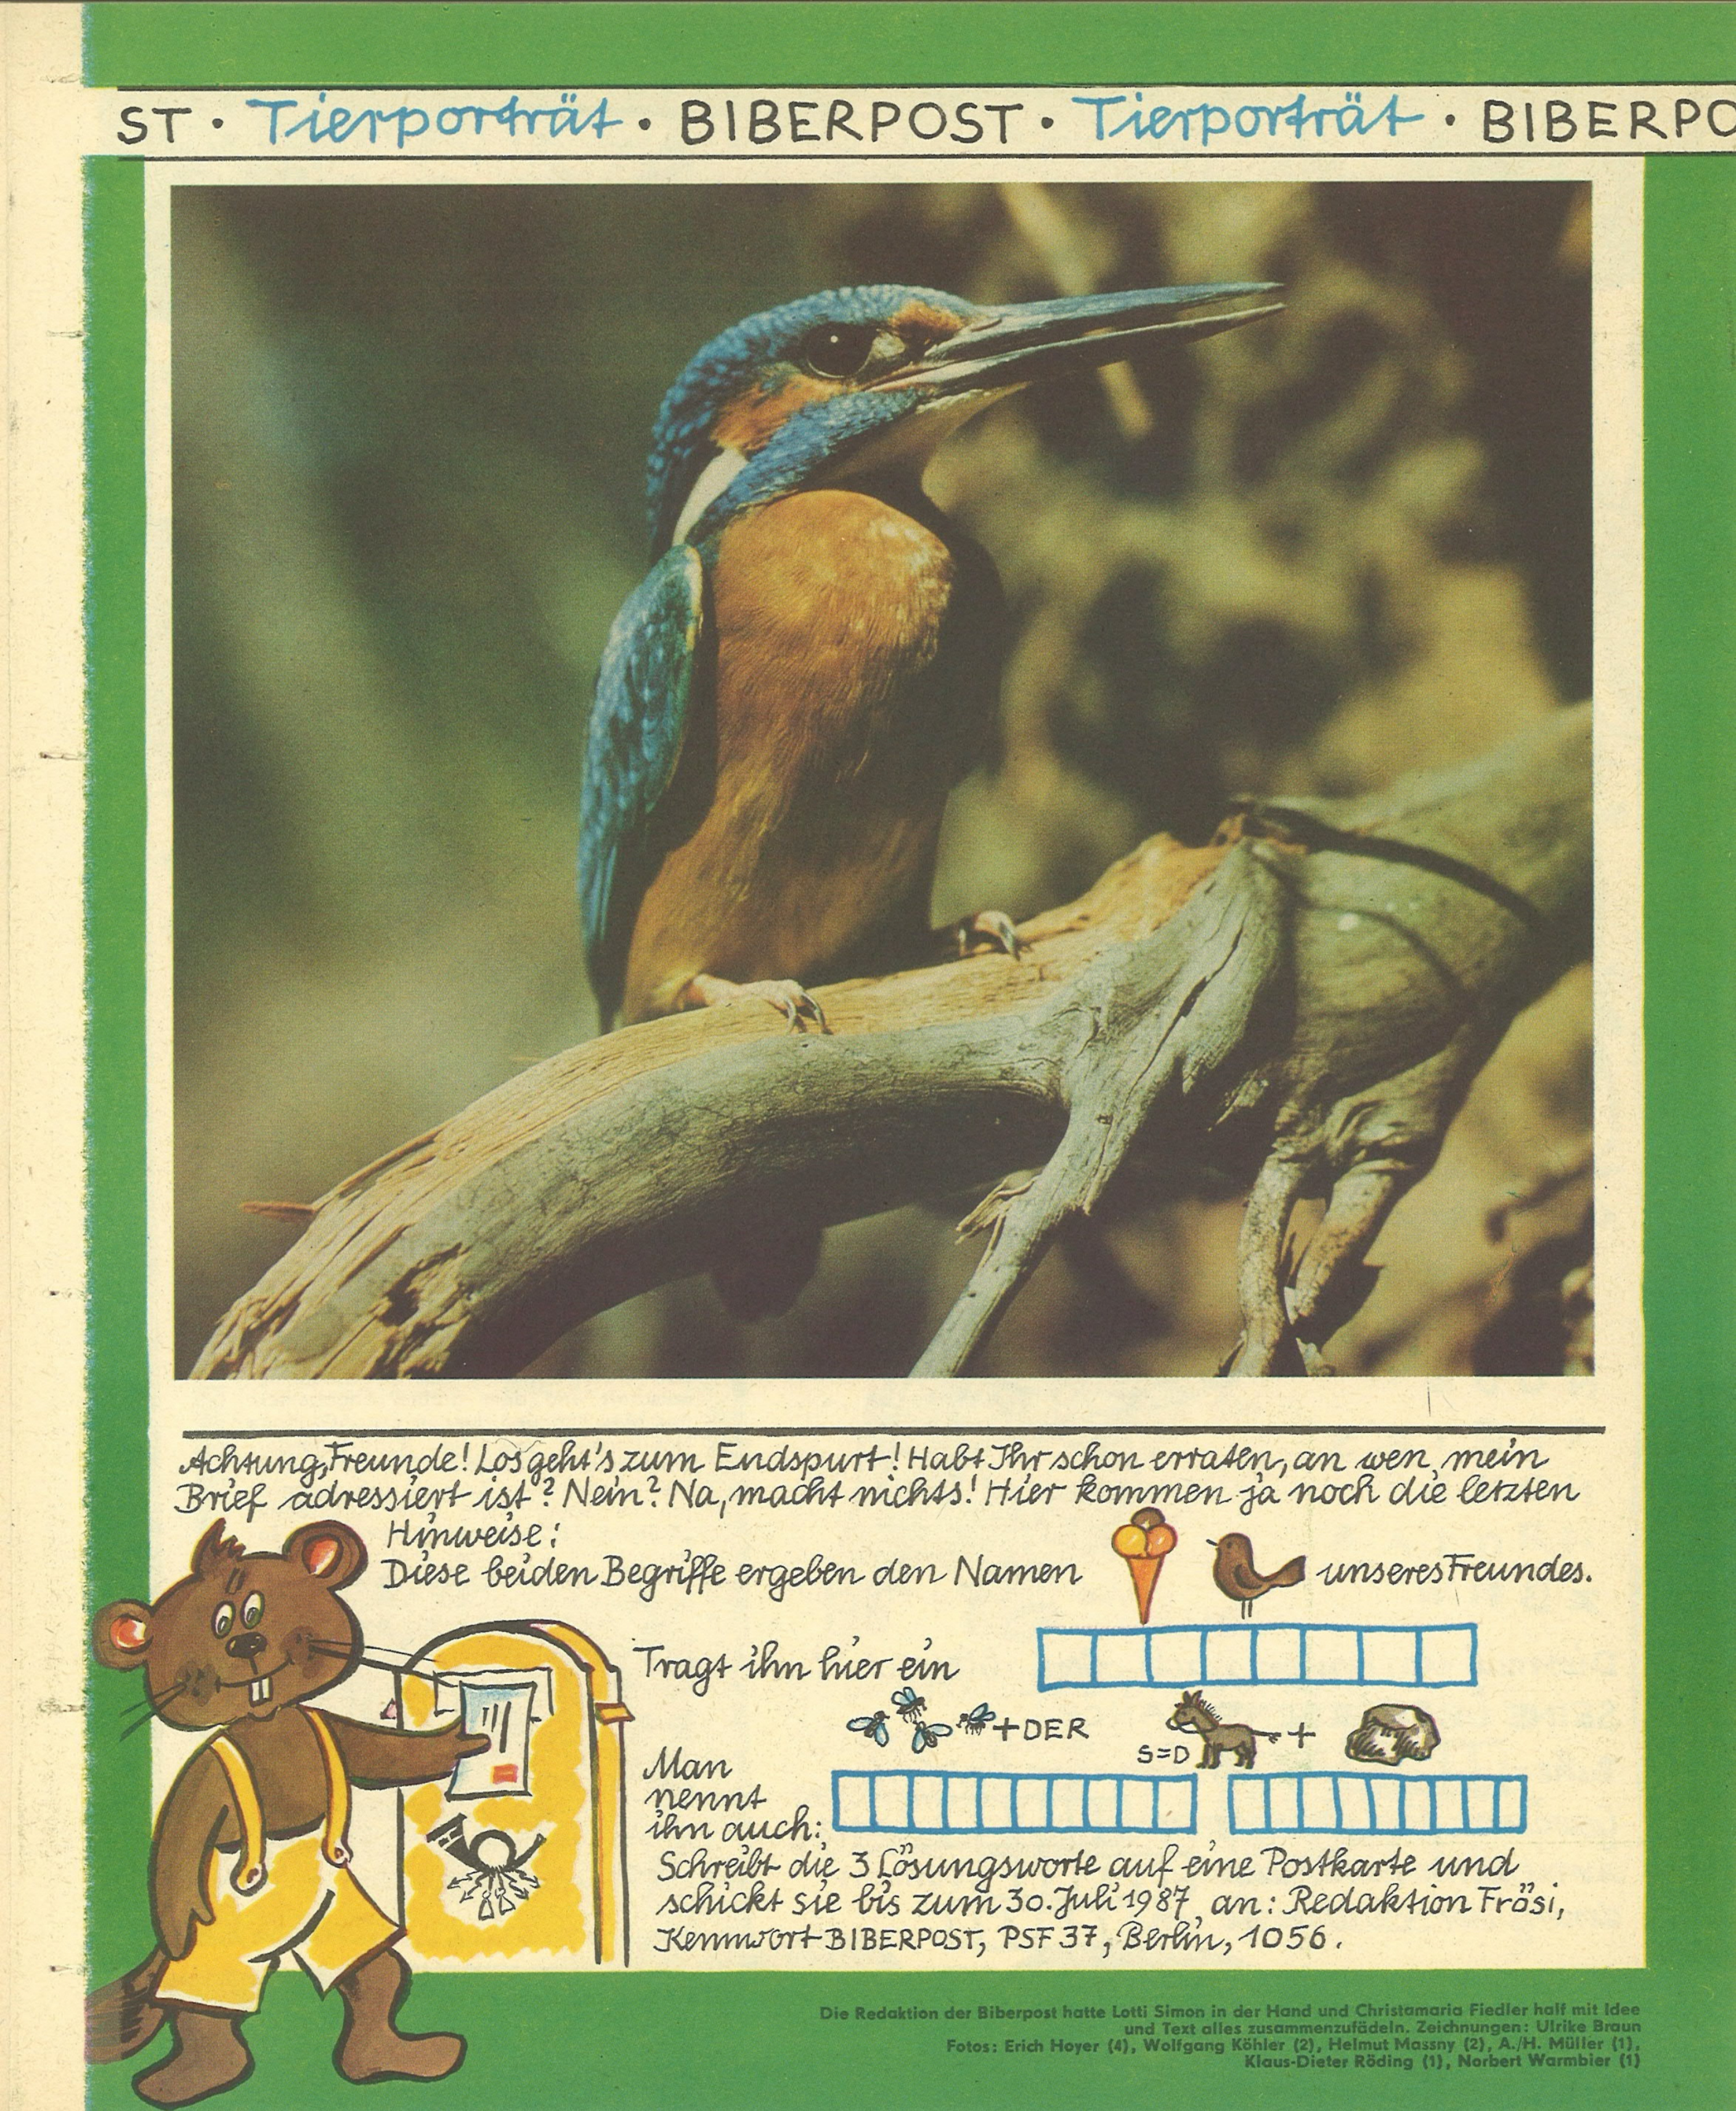 ST · Tierporträt · BIBERPOST · Tierporträt · BIBERPO
Achtung, Freunde! Los geht's zum Endspurt! Habt Ihr schon erraten, an wen mein
Brief adressiert ist? Nein? Na, macht nichts! Hier kommen ja noch die letzten
Hinweise:
Diese beiden Begriffe ergeben den Namen unseres Freundes.
Tragt ihn hier ein
+DER
S=D +
Man
nennt
ihn auch:
Schreibt die 3 Lösungsworte auf eine Postkarte und
schickt sie bis zum 30. Juli 1987 an: Redaktion Frösi,
Kennwort BIBERPOST, PSF 37, Berlin, 1056.
Die Redaktion der Biberpost hatte Lotti Simon in der Hand und Christamaria Fiedler half mit Idee
und Text alles zusammenzufädeln. Zeichnungen: Ulrike Braun
Fotos: Erich Hoyer (4), Wolfgang Köhler (2), Helmut Massny (2), A./H. Müller (1),
Klaus-Dieter Röding (1), Norbert Warmbier (1)